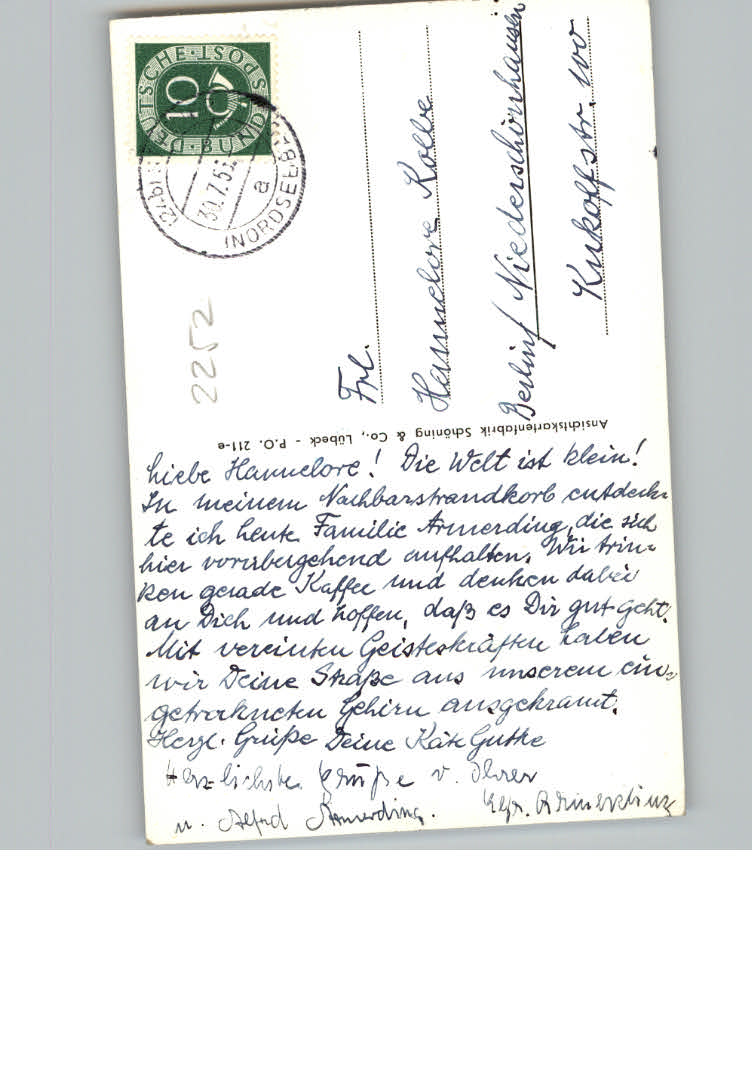 DEUTSCHE BUNDESPOST
10
30.7.5
a
(NORDSEEB
2252
Frl.
Hannelore Kolbe
Berlin/ Niederschönhausen
Kukoffstr. 100
Ansichtskartenfabrik Schöning & Co., Lübeck - P.O. 211-e
Liebe Hannelore! Die Welt ist klein!
In meinem Nachbarstrandkorb entdeck-
te ich heute Familie Armerding, die sich
hier vorübergehend aufhalten. Wir trin-
ken gerade Kaffee und denken dabei
an Dich und hoffen, daß es Dir gut geht.
Mit vereinten Geisteskräften haben
wir Deine Straße aus unserem ein-
getrockneten Gehirn ausgekramt.
Herzl. Grüße Deine Käte Guthe
Herzlichste Grüße v. Ihrer
Armerding
u. Alfred Armerding.